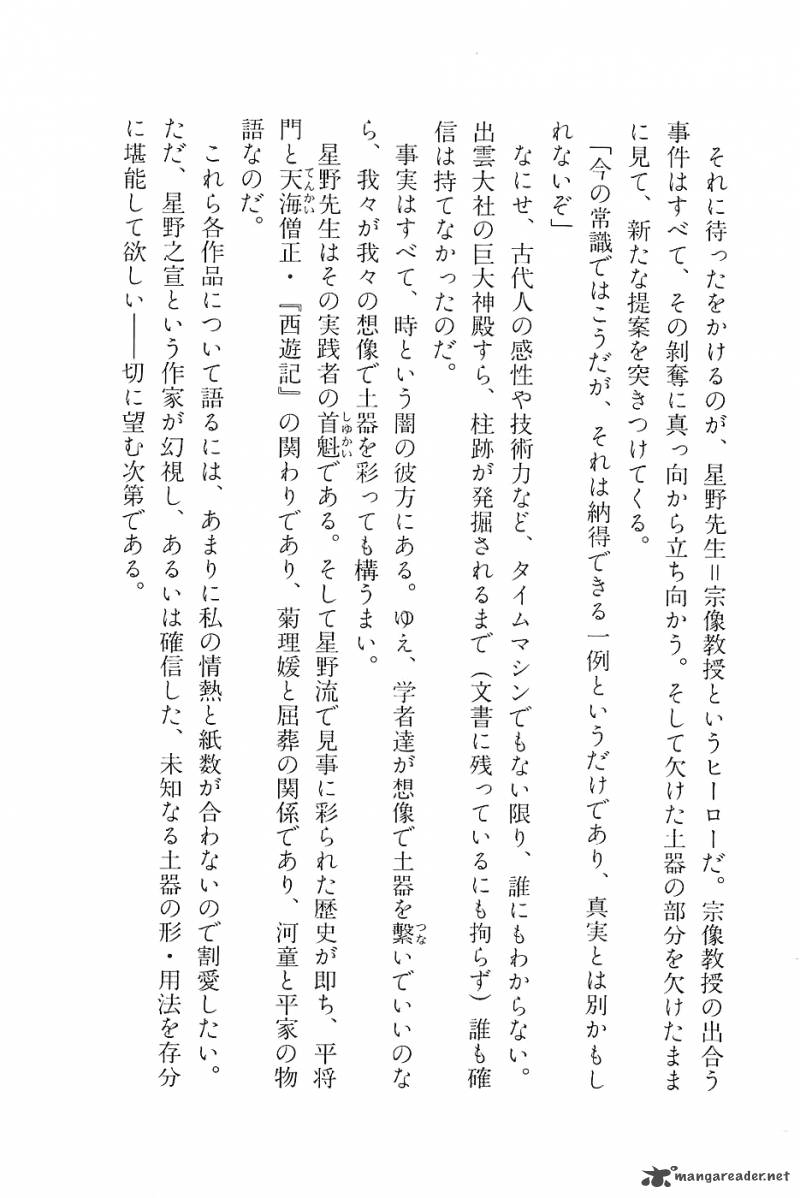 それに待ったをかけるのが、星野先生＝宗像教授というヒーローだ。宗像教授の出合う
事件はすべて、その剝奪に真っ向から立ち向かう。そして欠けた土器の部分を欠けたまま
に見て、新たな提案を突きつけてくる。
「今の常識ではこうだが、それは納得できる一例というだけであり、真実とは別かもし
れないぞ」
なにせ、古代人の感性や技術力など、タイムマシンでもない限り、誰にもわからない。
出雲大社の巨大神殿すら、柱跡が発掘されるまで（文書に残っているにも拘らず）誰も確
信は持てなかったのだ。
事実はすべて、時という闇の彼方にある。ゆえ、学者達が想像で土器を繫つないでいいのな
ら、我々が我々の想像で土器を彩っても構うまい。
星野先生はその実践者の首魁しゆかいである。そして星野流で見事に彩られた歴史が即ち、平将
門と天海てんかい僧正・『西遊記』の関わりであり、菊理媛と屈葬の関係であり、河童と平家の物
語なのだ。
これら各作品について語るには、あまりに私の情熱と紙数が合わないので割愛したい。
ただ、星野之宣という作家が幻視し、あるいは確信した、未知なる土器の形・用法を存分
に堪能して欲しい――切に望む次第である。
mangareader.net